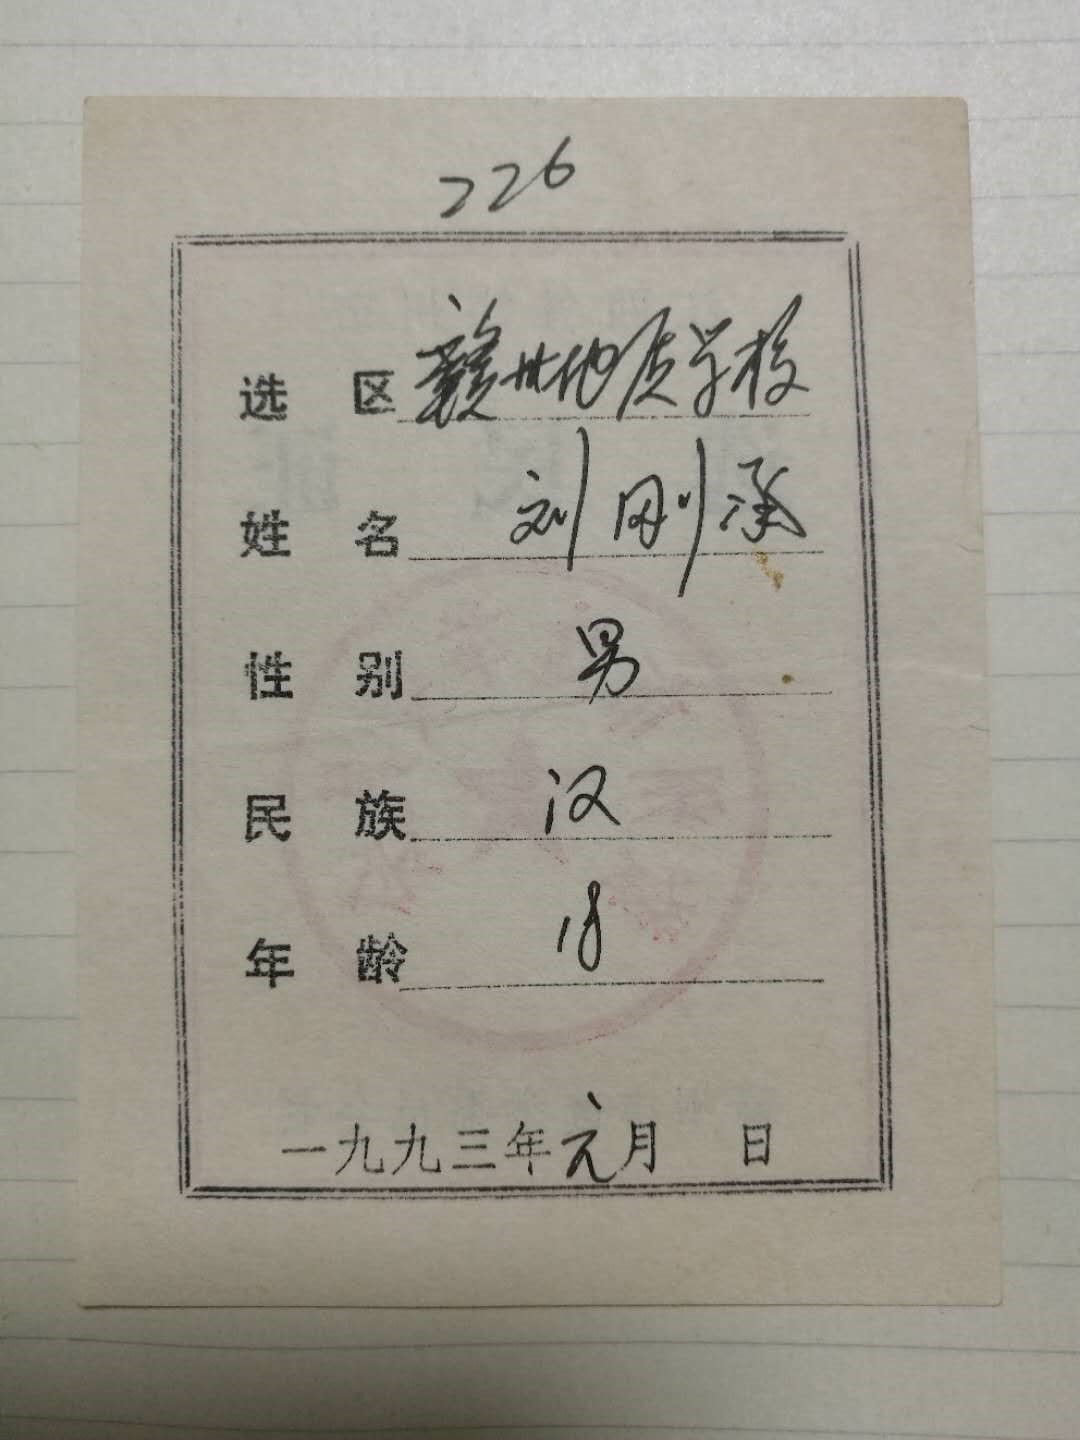 226
选 区 赣州地质学校
姓 名 刘刚承
性 别 男
民 族 汉
年 龄 18
一九九三年元月 日